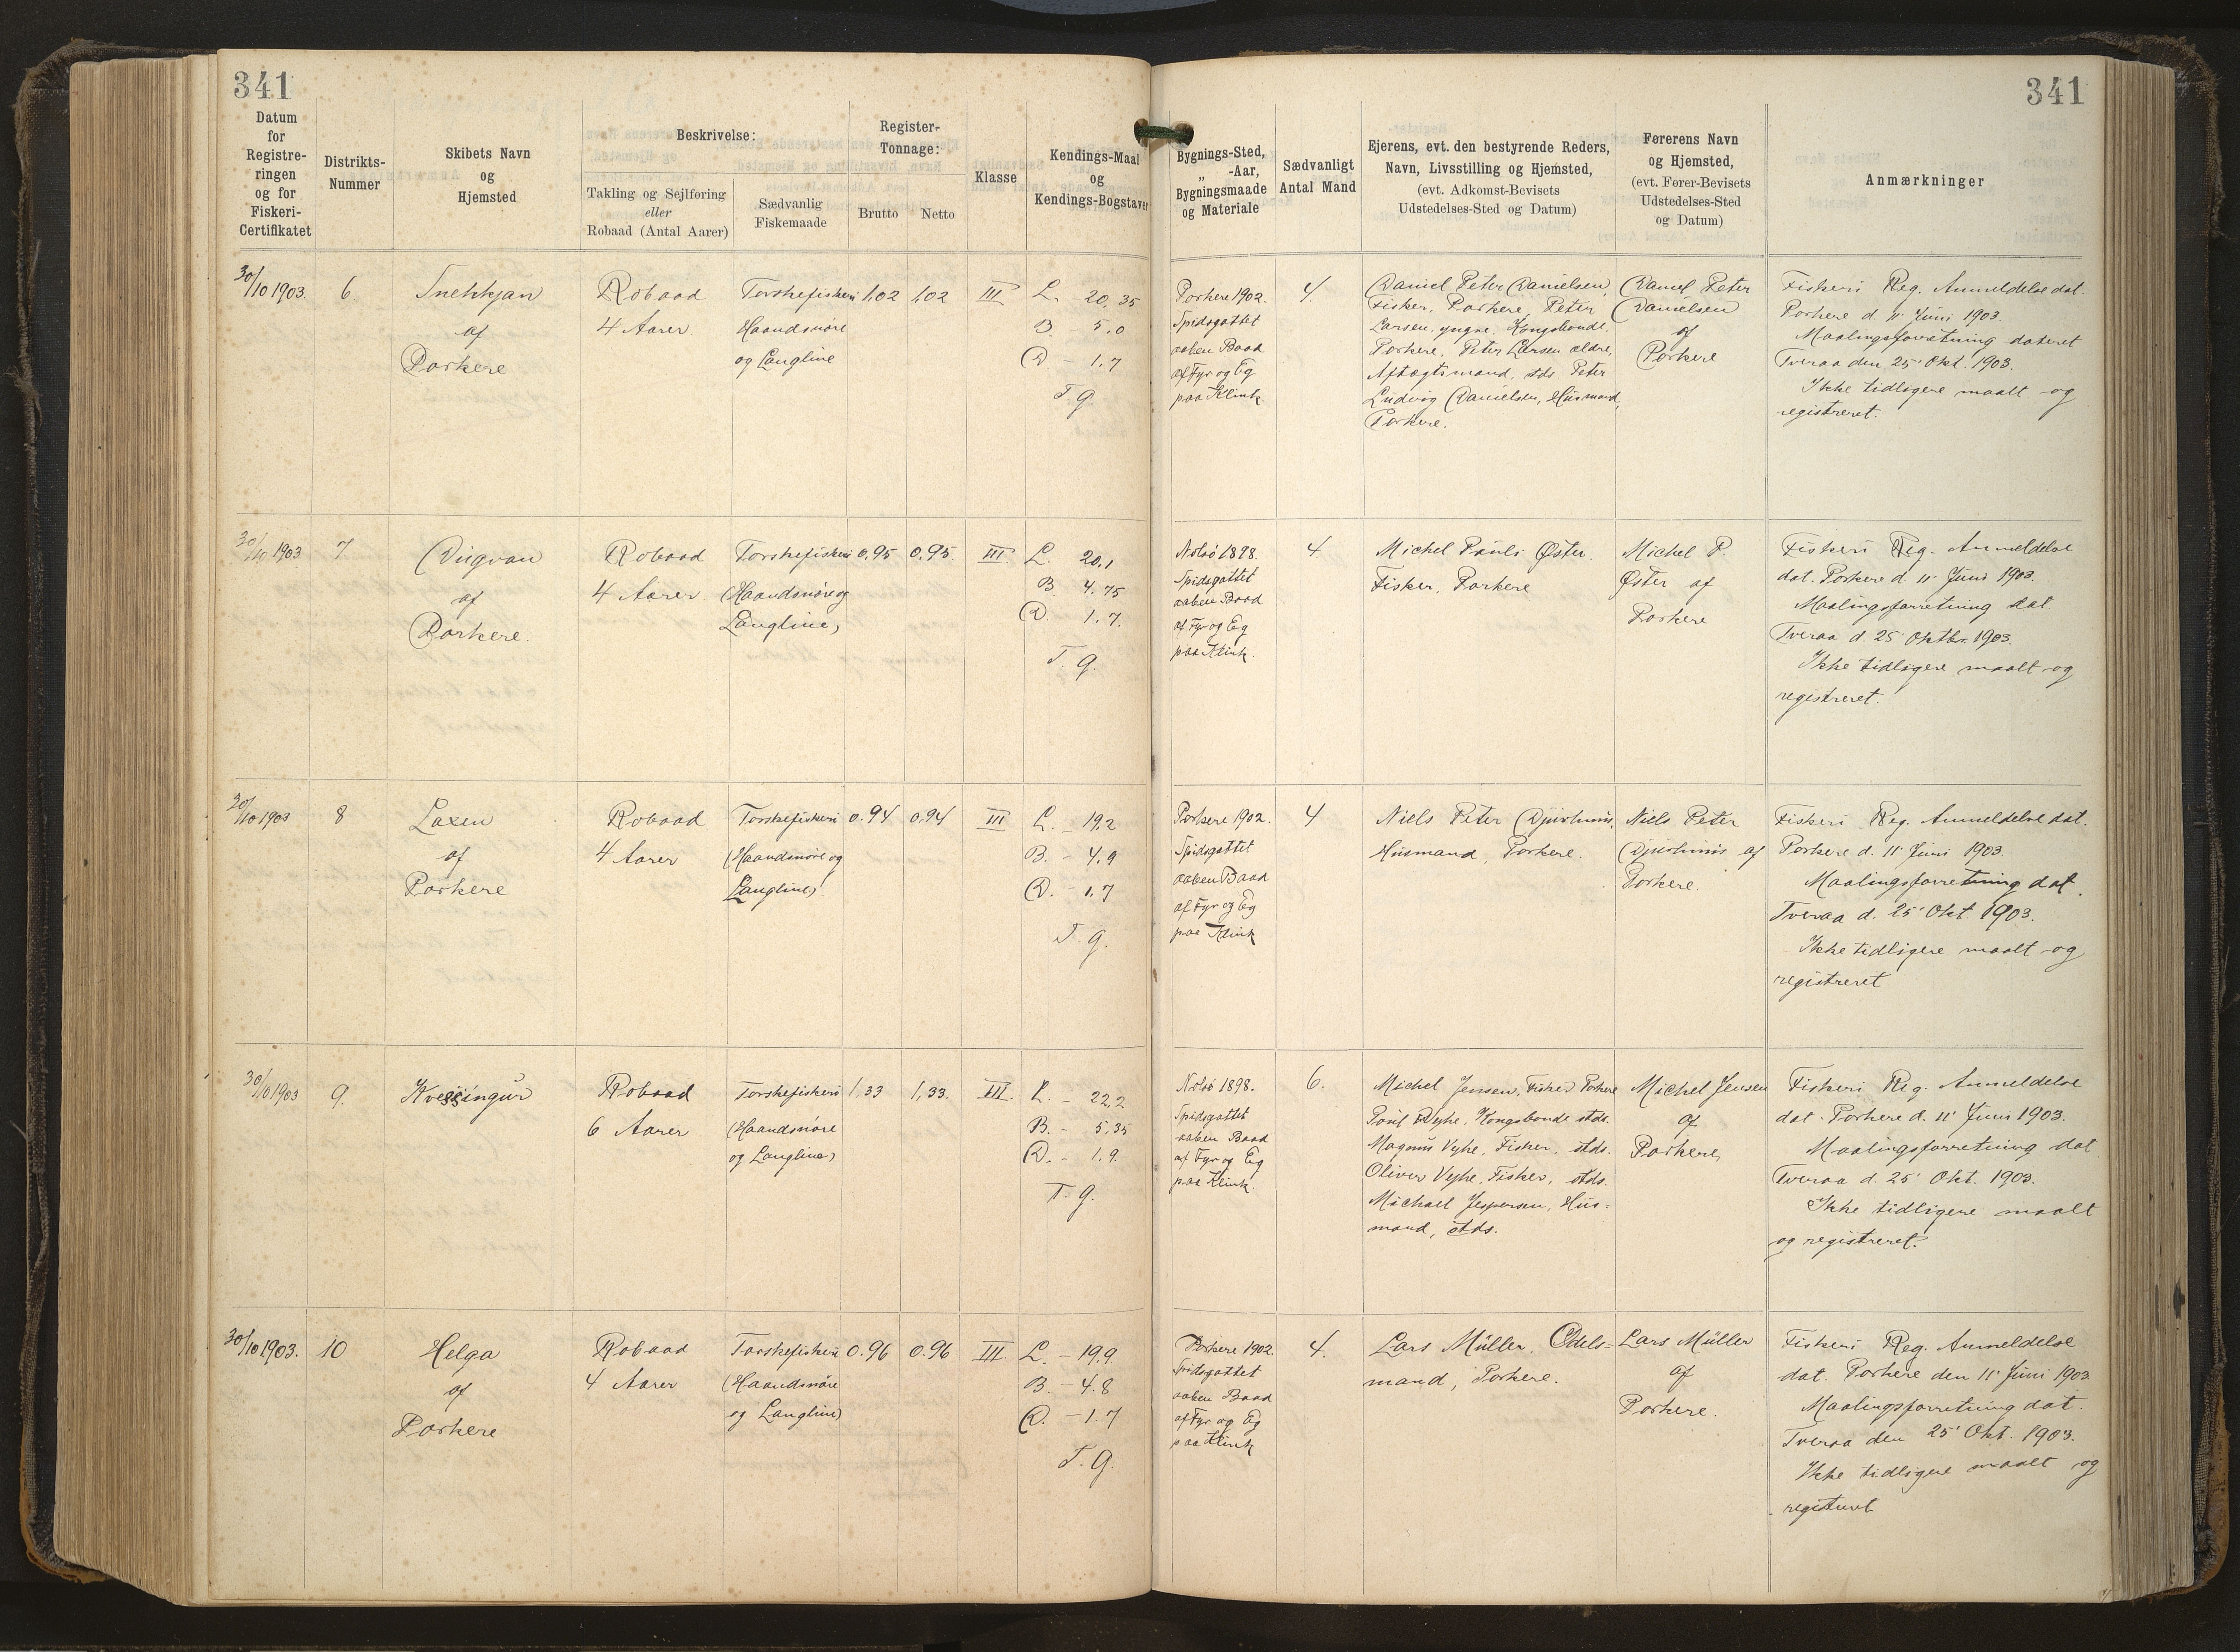 341
341
Datum
for
Registre-
ringen
og for
Fiskeri-
Certifikatet
Distrikts-
Nummer
Skibets Navn
og
Hjemsted
Beskrivelse:
Takling og Sejlføring
eller
Robaad (Antal Aarer)
Sædvanlig
Fiskemaade
Register-
Tonnage:
Brutto
Netto
Klasse
Kendings-Maal
og
Kendings-Bogstaver
Bygnings-Sted,
„ -Aar,
Bygningsmaade
og Materiale
Sædvanligt
Antal Mand
Ejerens, evt. den bestyrende Reders,
Navn, Livsstilling og Hjemsted,
(evt. Adkomst-Bevisets
Udstedelses-Sted og Datum)
Førerens Navn
og Hjemsted,
(evt. Fører-Bevisets
Udstedelses-Sted
og Datum)
Anmærkninger
30/10 1903.
6
Snekkjan
af
Porkere
Robaad
4 Aarer
Torskefiskeri
Haandsnøre
og Langline
1,02
1,02
III
L. 20,35
B. 5,0
D - 1,7
T. g.
Porkere 1902.
Spidsgattet
aaben Baad
af Fyr og Eg
paa Klink
4.
Daniel Peter Danielsen,
Fisker, Porkere, Peter
Larsen, yngre, Kongsbonde,
Porkere, Peter Larsen ældre,
Aftægtsmand, stds Peter
Ludvig Danielsen, Husmand,
Porkere.
Daniel Peter
Danielsen
af
Porkere
Fiskeri Reg. Anmeldelse dat.
Porkere d. 11' Juni 1903.
Maalingsforretning dateret
Tveraa den 25' Okt. 1903.
Ikke tidligere maalt og
registreret.
30/10 1903
7
Dugvan
af
Porkere.
Robaad
4 Aarer
Torskefiskeri
(Haandsnøre og
Langline)
0,95
0,95
III.
L. 20,1
B. 4,75
D. 1,7.
T. g.
Nolsø 1898.
Spidsgattet
aaben Baad
af Fyr og Eg
paa Klink.
4.
Michel Pauli Øster.
Fisker, Porkere
Michel P.
Øster af
Porkere
Fiskeri Reg. Anmeldelse
dat. Porkere d 11' Juni 1903.
Maalingsforretning dat.
Tveraa d. 25' Oktbr. 1903.
Ikke tidligere maalt og
registreret.
30/10 1903
8
Laxen
af
Porkere
Robaad
4 Aarer
Torskefiskeri
(Haandsnøre og
Langline)
0.94
0.94
III
L. - 19,2
B. - 4,9
D. - 1,7
T. g.
Porkere 1902.
Spidsgattet
aaben Baad
af Fyr og Eg
paa Klink
4
Niels Peter
Husmand, Porkere.
Niels Peter
af
Porkere.
Fiskeri Reg. Anmeldelse dat.
Porkere d. 11' Juni 1903.
Maalingsforretning dat.
Tveraa d. 25' Okt. 1903.
Ikke tidligere maalt og
registreret
30/10 1903
9.
Kvessingur
Robaad
6 Aarer
Torskefiskeri
(Haandsnøre
og Langline)
1,33
1,33.
III.
L. - 22,2
B. - 5,35
D. - 1,9.
T. g.
Nolsø 1898.
Spidsgattet
aaben Baad
af Fyr og Eg
paa Klink.
6.
Michel Jensen, Fisker Porkere
Poul Vyhe, Kongsbonde stds.
Magnus Vyhe, Fisker, stds.
Oliver Vyhe, Fisker, stds.
Michael Jespersen, Hus-
mand, stds.
Michel Jensen
af
Porkere
Fiskeri Reg. Anmeldelse
dat. Porkere d. 11' Juni 1903.
Maalingsforretning dat
Tveraa d. 25' Okt. 1903.
Ikke tidligere maalt
og registreret.
30/10 1903.
10
Helga
af
Porkere
Robaad
4 Aarer
Torskefiskeri
(Haandsnøre
og Langline)
0.96
0.96
III.
L. - 19.9
B. - 4.8
D. - 1.7
T. g.
Porkere 1902.
Spidsgattet
aaben Baad
af Fyr og Eg
paa Klink
4.
Lars Müller, Odels-
mand, Porkere.
Lars Müller
af
Porkere.
Fiskeri Reg. Anmeldelse
dat. Porkere den 11' Juni 1903
Maalingsforretning dat.
Tveraa den 25' Okt. 1903.
Ikke tidligere maalt og
registreret